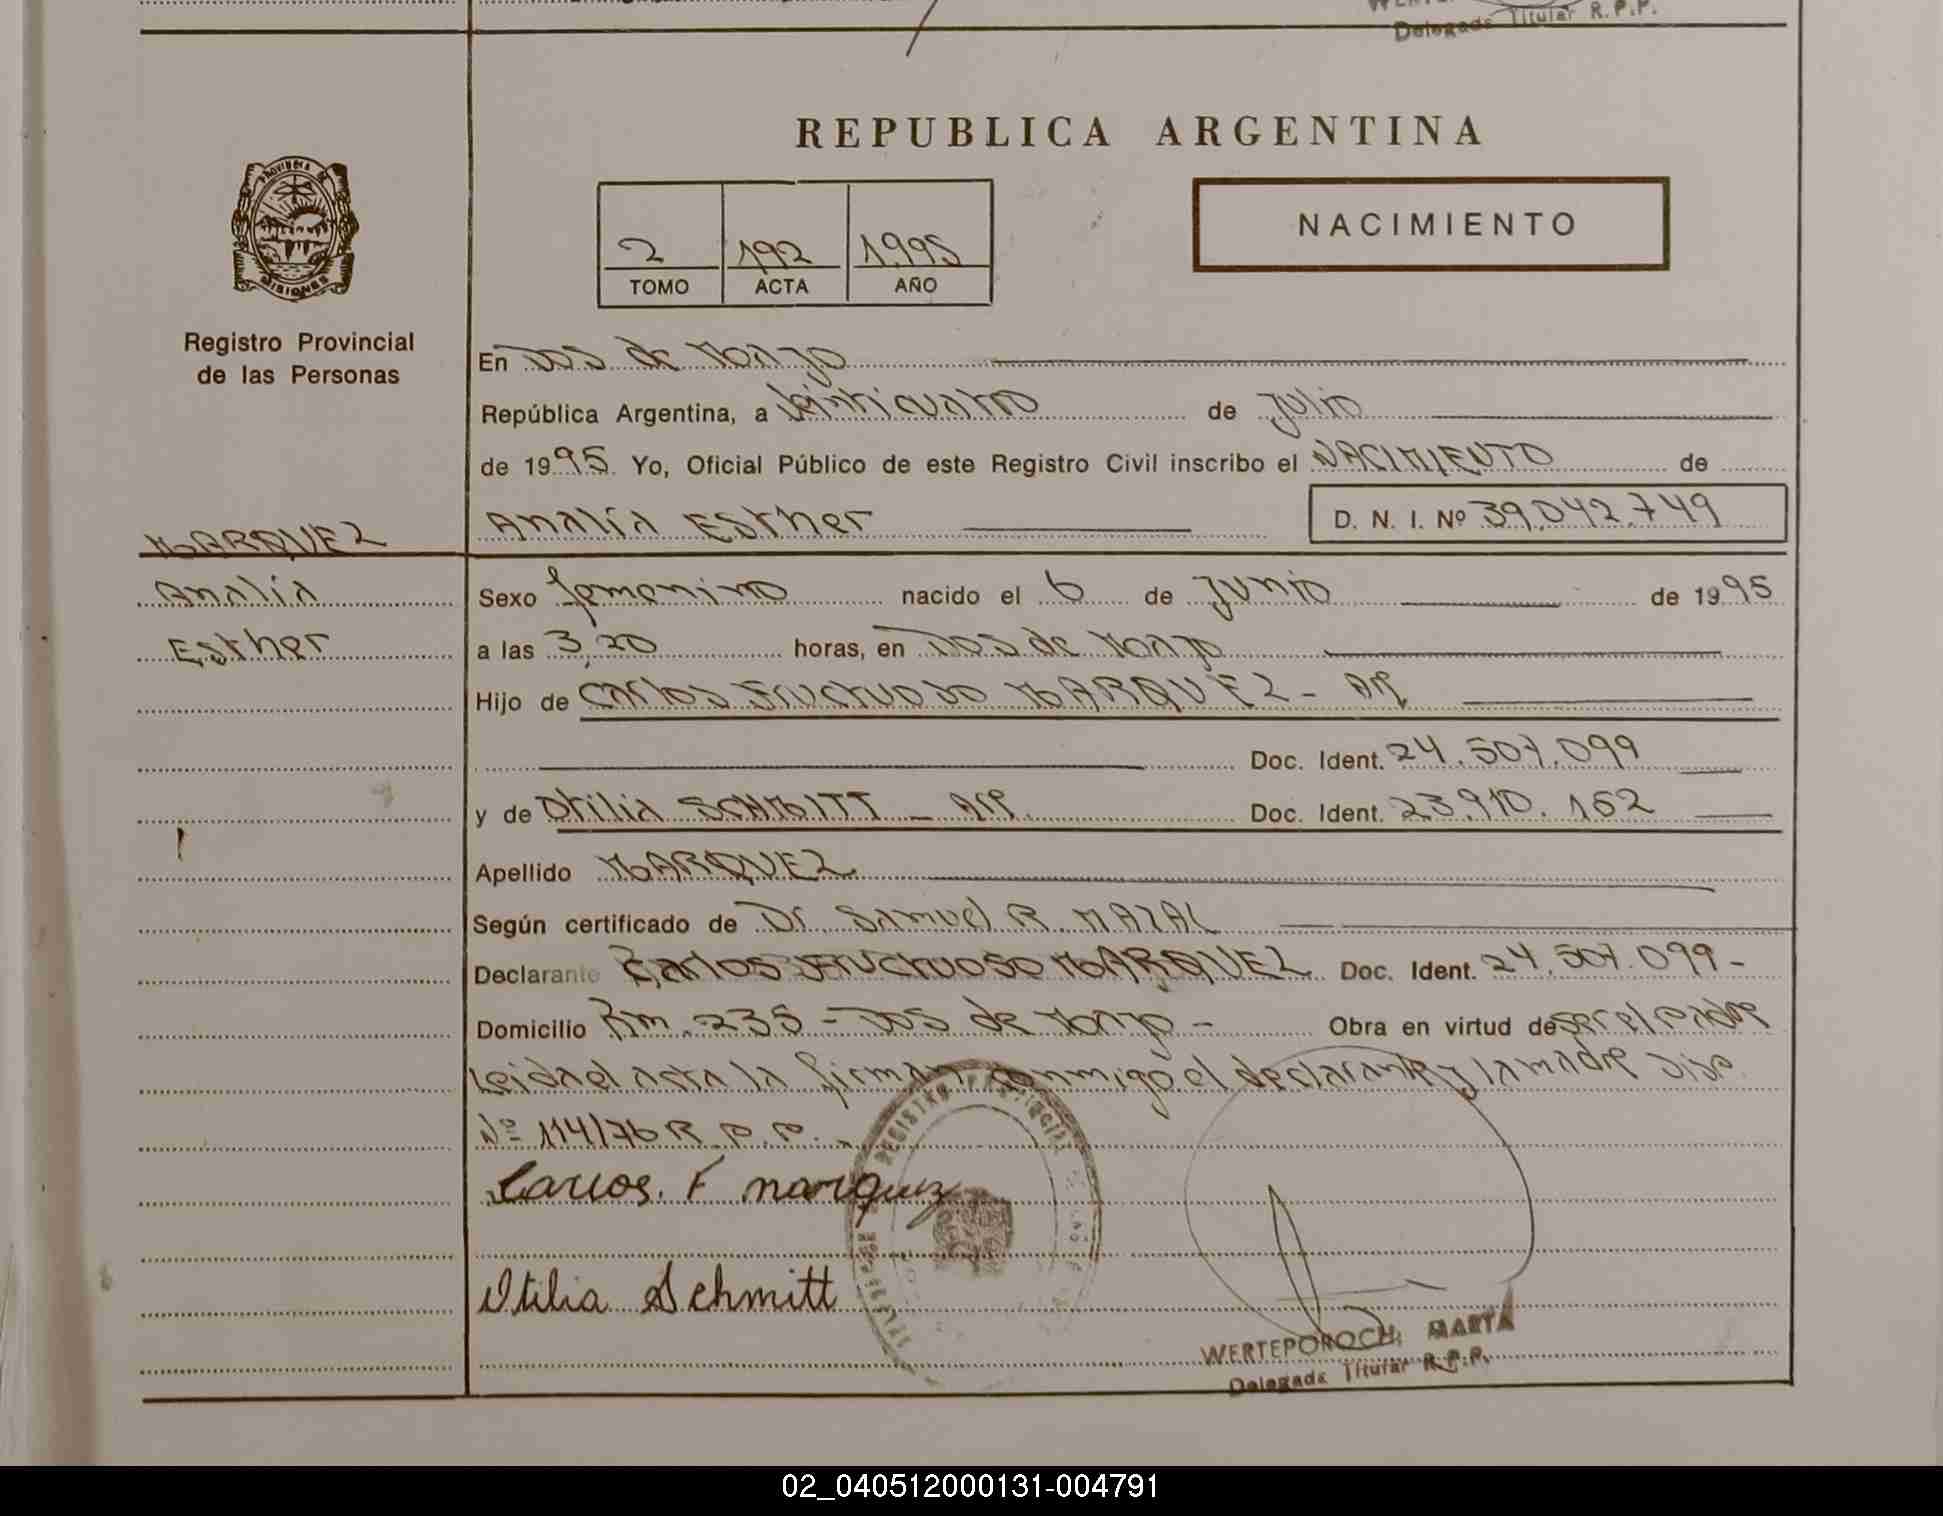 Delegada Titular R.P.P.
REPUBLICA ARGENTINA
PROVINCIA DE
MISIONES
Registro Provincial
de las Personas
2 192 1995
TOMO ACTA AÑO
NACIMIENTO
En Dos de Mayo
República Argentina, a Veinticuatro de Julio
de 1995. Yo, Oficial Público de este Registro Civil inscribo el NACIMIENTO de
Analía Esther D. N. I. Nº 39.042.749
MARQUEZ
Analía
Esther
Sexo femenino nacido el 6 de Junio de 1995
a las 3,20 horas, en Dos de Mayo
Hijo de Carlos Fructuoso MARQUEZ - Arg
Doc. Ident. 24.507.099
y de Otilia SCHMITT - Arg. Doc. Ident. 23.910.162
Apellido MARQUEZ
Según certificado de Dr. Samuel R. MAZAL
Declarante Carlos Fructuoso MARQUEZ Doc. Ident. 24.507.099-
Domicilio Km. 235 - Dos de Mayo - Obra en virtud de ser el padre
Leida el acta la firman conmigo el declarante y la madre Disp.
Nº 114/76 R.P.P.-
Carlos. F marquez
Otilia Schmitt
REGISTRO PROVINCIAL
WERTEPOROCH, MARTA
Delegada Titular R.P.P.
02_040512000131-004791